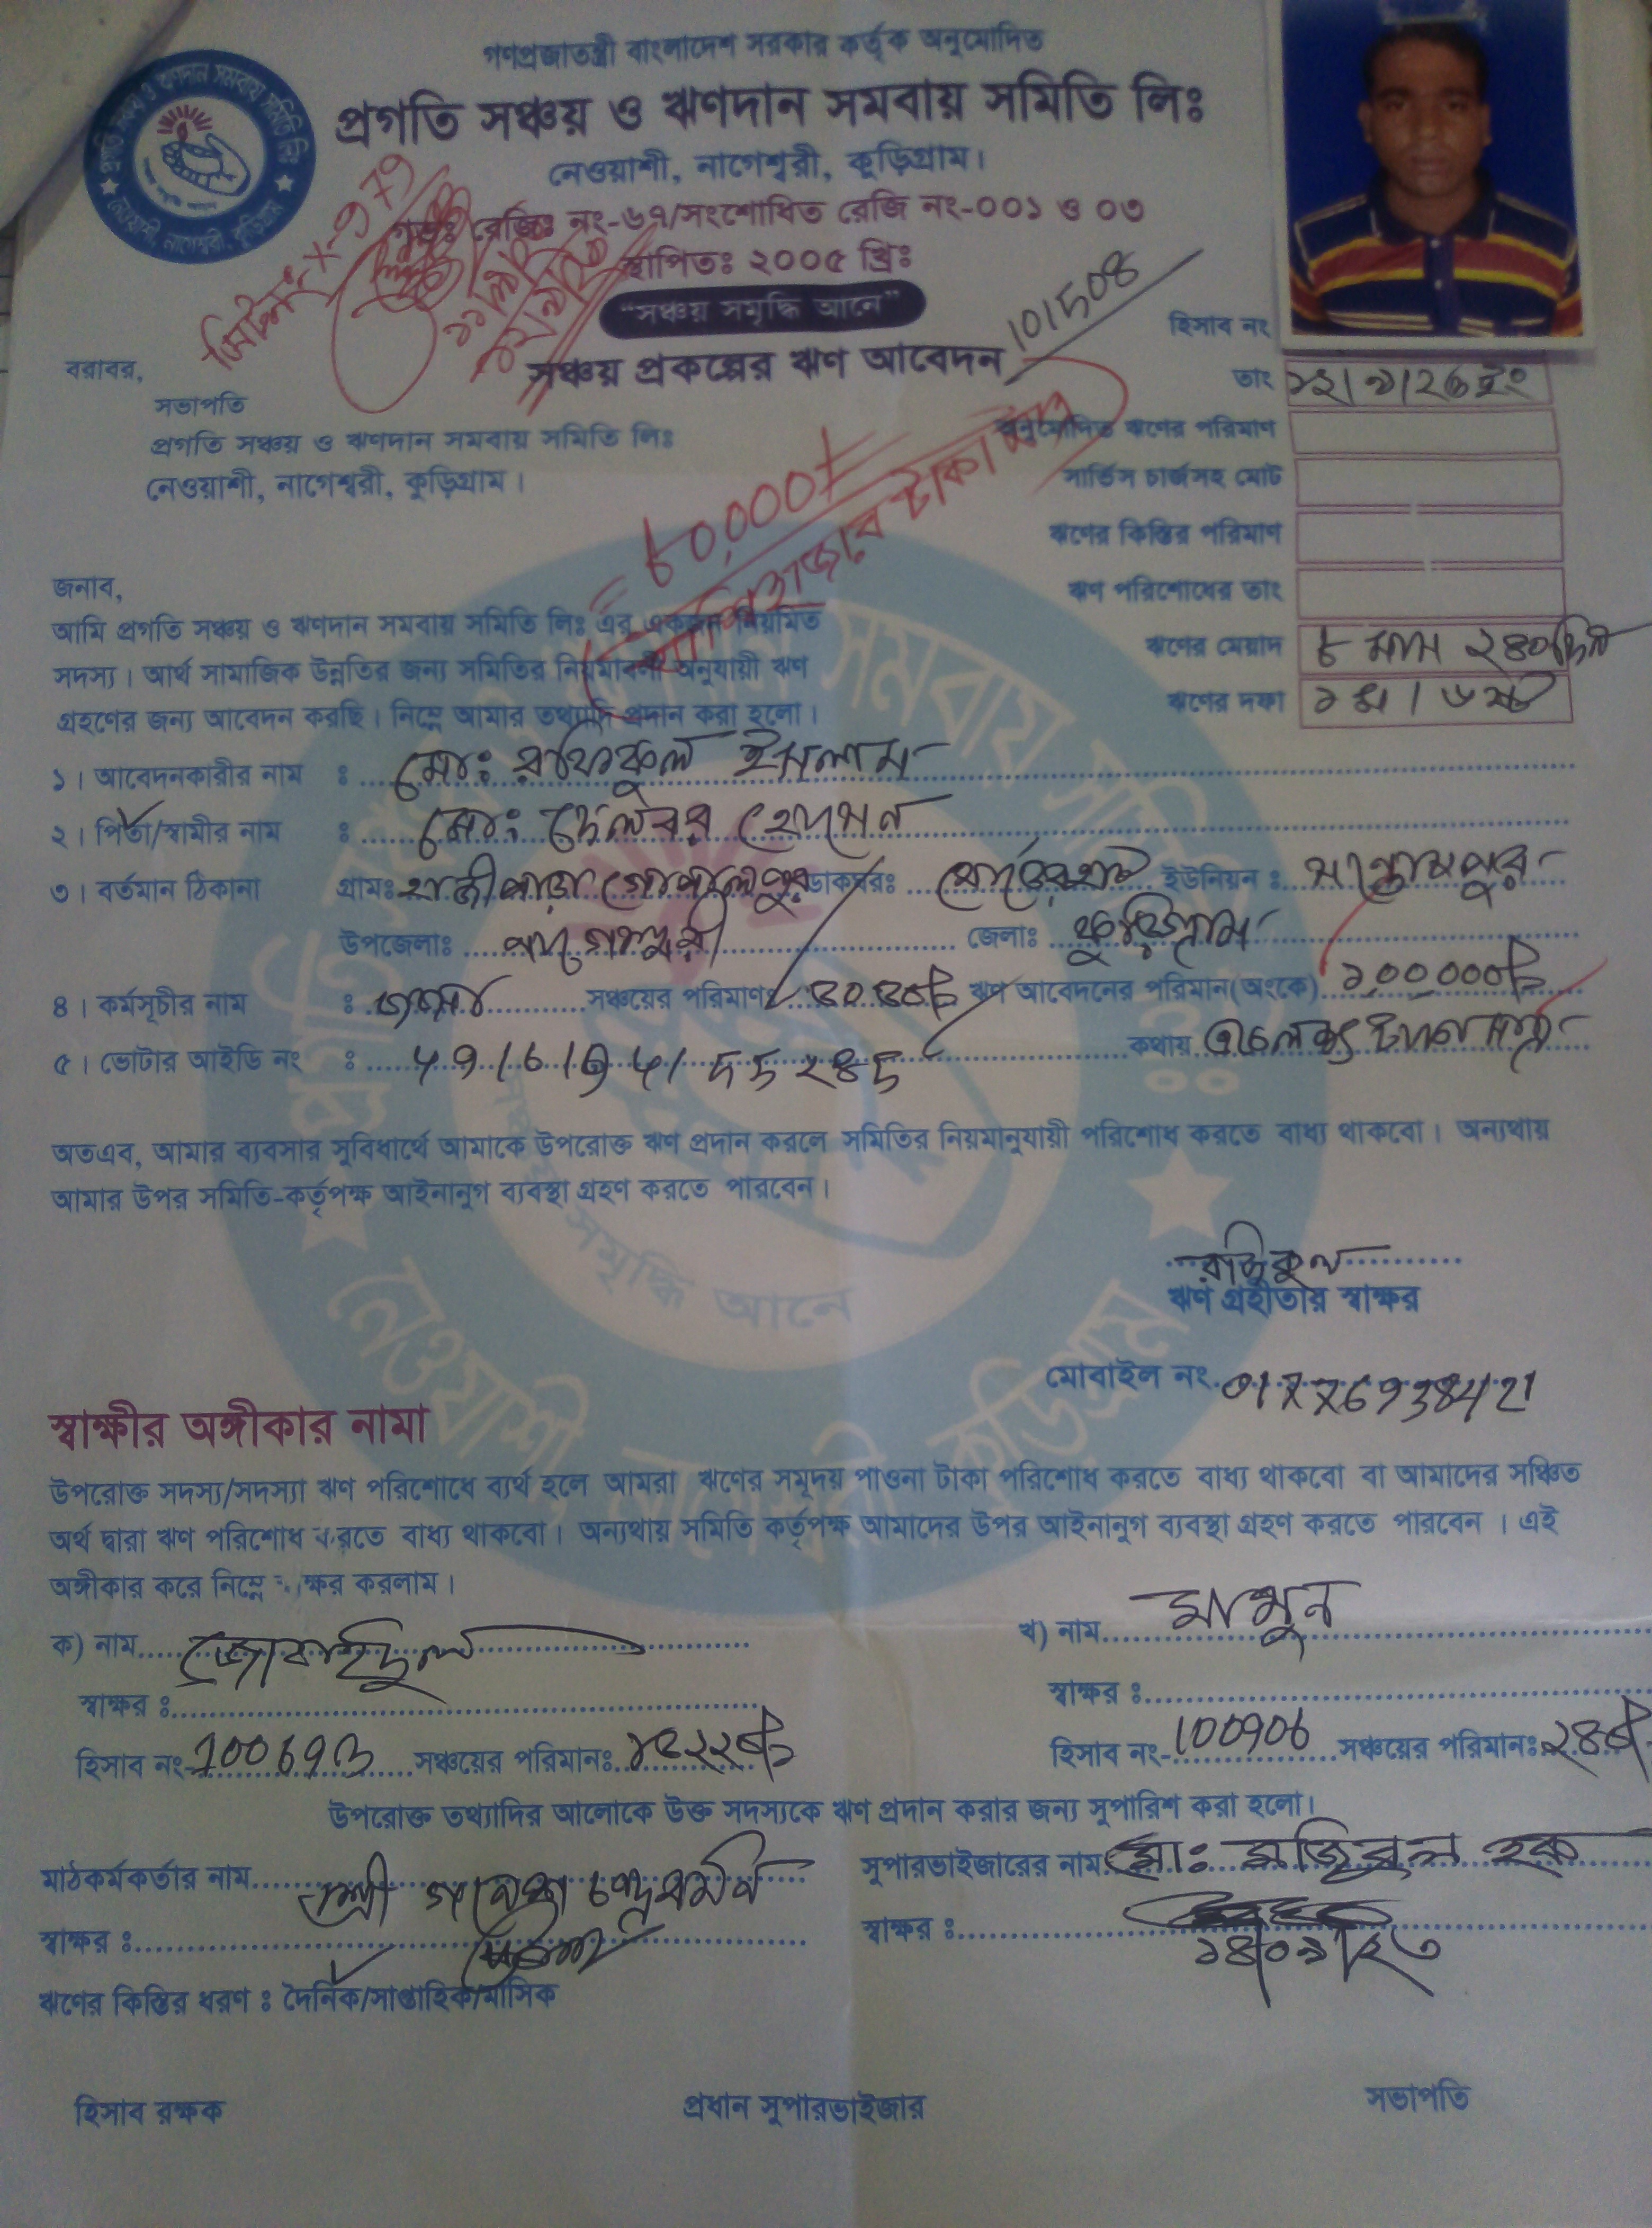 গণপ্রজাতন্ত্রী বাংলাদেশ সরকার কর্তৃক অনুমোদিত
প্রগতি সঞ্চয় ও ঋণদান সমবায় সমিতি লিঃ
নেওয়াশী, নাগেশ্বরী, কুড়িগ্রাম।
রেজিঃ নং-৬৭/সংশোধিত রেজি নং-০০১ ও ০৩
স্থাপিতঃ ২০০৫ খ্রিঃ
"সঞ্চয় সমৃদ্ধি আনে"
সঞ্চয় প্রকল্পের ঋণ আবেদন
হিসাব নং 101508
তাং
অনুমোদিত ঋণের পরিমাণ
সার্ভিস চার্জসহ মোট
ঋণের কিস্তির পরিমাণ
ঋণ পরিশোধের তাং
ঋণের মেয়াদ ৮ মাস ২৪০দিন
ঋণের দফা
বরাবর,
সভাপতি
প্রগতি সঞ্চয় ও ঋণদান সমবায় সমিতি লিঃ
নেওয়াশী, নাগেশ্বরী, কুড়িগ্রাম।
৮০,০০০/=
জনাব,
আমি প্রগতি সঞ্চয় ও ঋণদান সমবায় সমিতি লিঃ এর একজন নিয়মিত
সদস্য। আর্থ সামাজিক উন্নতির জন্য সমিতির নিয়মাবলী অনুযায়ী ঋণ
গ্রহণের জন্য আবেদন করছি। নিম্নে আমার তথ্যাদি প্রদান করা হলো।
১। আবেদনকারীর নাম : মোঃ রফিকুল ইসলাম
২। পিতা/স্বামীর নাম : মোঃ দেলবর হোসেন
৩। বর্তমান ঠিকানা গ্রামঃ হাজীপাড়া গোপালপুর ডাকঘরঃ ইউনিয়ন : সন্তোষপুর
উপজেলাঃ নাগেশ্বরী জেলাঃ কুড়িগ্রাম
৪। কর্মসূচীর নাম : সঞ্চয়ের পরিমাণঃ ঋণ আবেদনের পরিমান(অংকে) ১,০০,০০০৳
৫। ভোটার আইডি নং : কথায় একলক্ষ টাকা মাত্র
অতএব, আমার ব্যবসার সুবিধার্থে আমাকে উপরোক্ত ঋণ প্রদান করলে সমিতির নিয়মানুযায়ী পরিশোধ করতে বাধ্য থাকবো। অন্যথায়
আমার উপর সমিতি-কর্তৃপক্ষ আইনানুগ ব্যবস্থা গ্রহণ করতে পারবেন।
রফিকুল
ঋণ গ্রহীতার স্বাক্ষর
মোবাইল নং
স্বাক্ষীর অঙ্গীকার নামা
উপরোক্ত সদস্য/সদস্যা ঋণ পরিশোধে ব্যর্থ হলে আমরা ঋণের সমূদয় পাওনা টাকা পরিশোধ করতে বাধ্য থাকবো বা আমাদের সঞ্চিত
অর্থ দ্বারা ঋণ পরিশোধ করতে বাধ্য থাকবো। অন্যথায় সমিতি কর্তৃপক্ষ আমাদের উপর আইনানুগ ব্যবস্থা গ্রহণ করতে পারবেন । এই
অঙ্গীকার করে নিম্নে স্বাক্ষর করলাম।
ক) নাম জোবাইদুল
খ) নাম মামুন
স্বাক্ষর :
স্বাক্ষর :
হিসাব নং- সঞ্চয়ের পরিমানঃ
হিসাব নং- 100906 সঞ্চয়ের পরিমানঃ
উপরোক্ত তথ্যাদির আলোকে উক্ত সদস্যকে ঋণ প্রদান করার জন্য সুপারিশ করা হলো।
মাঠকর্মকর্তার নাম শ্রী গনেশ চন্দ্র বর্মন
সুপারভাইজারের নাম মোঃ মজিবুল হক
স্বাক্ষর :
স্বাক্ষর :
১৪/০৯/২৩
ঋণের কিস্তির ধরণ : দৈনিক/সাপ্তাহিক/মাসিক
হিসাব রক্ষক
প্রধান সুপারভাইজার
সভাপতি